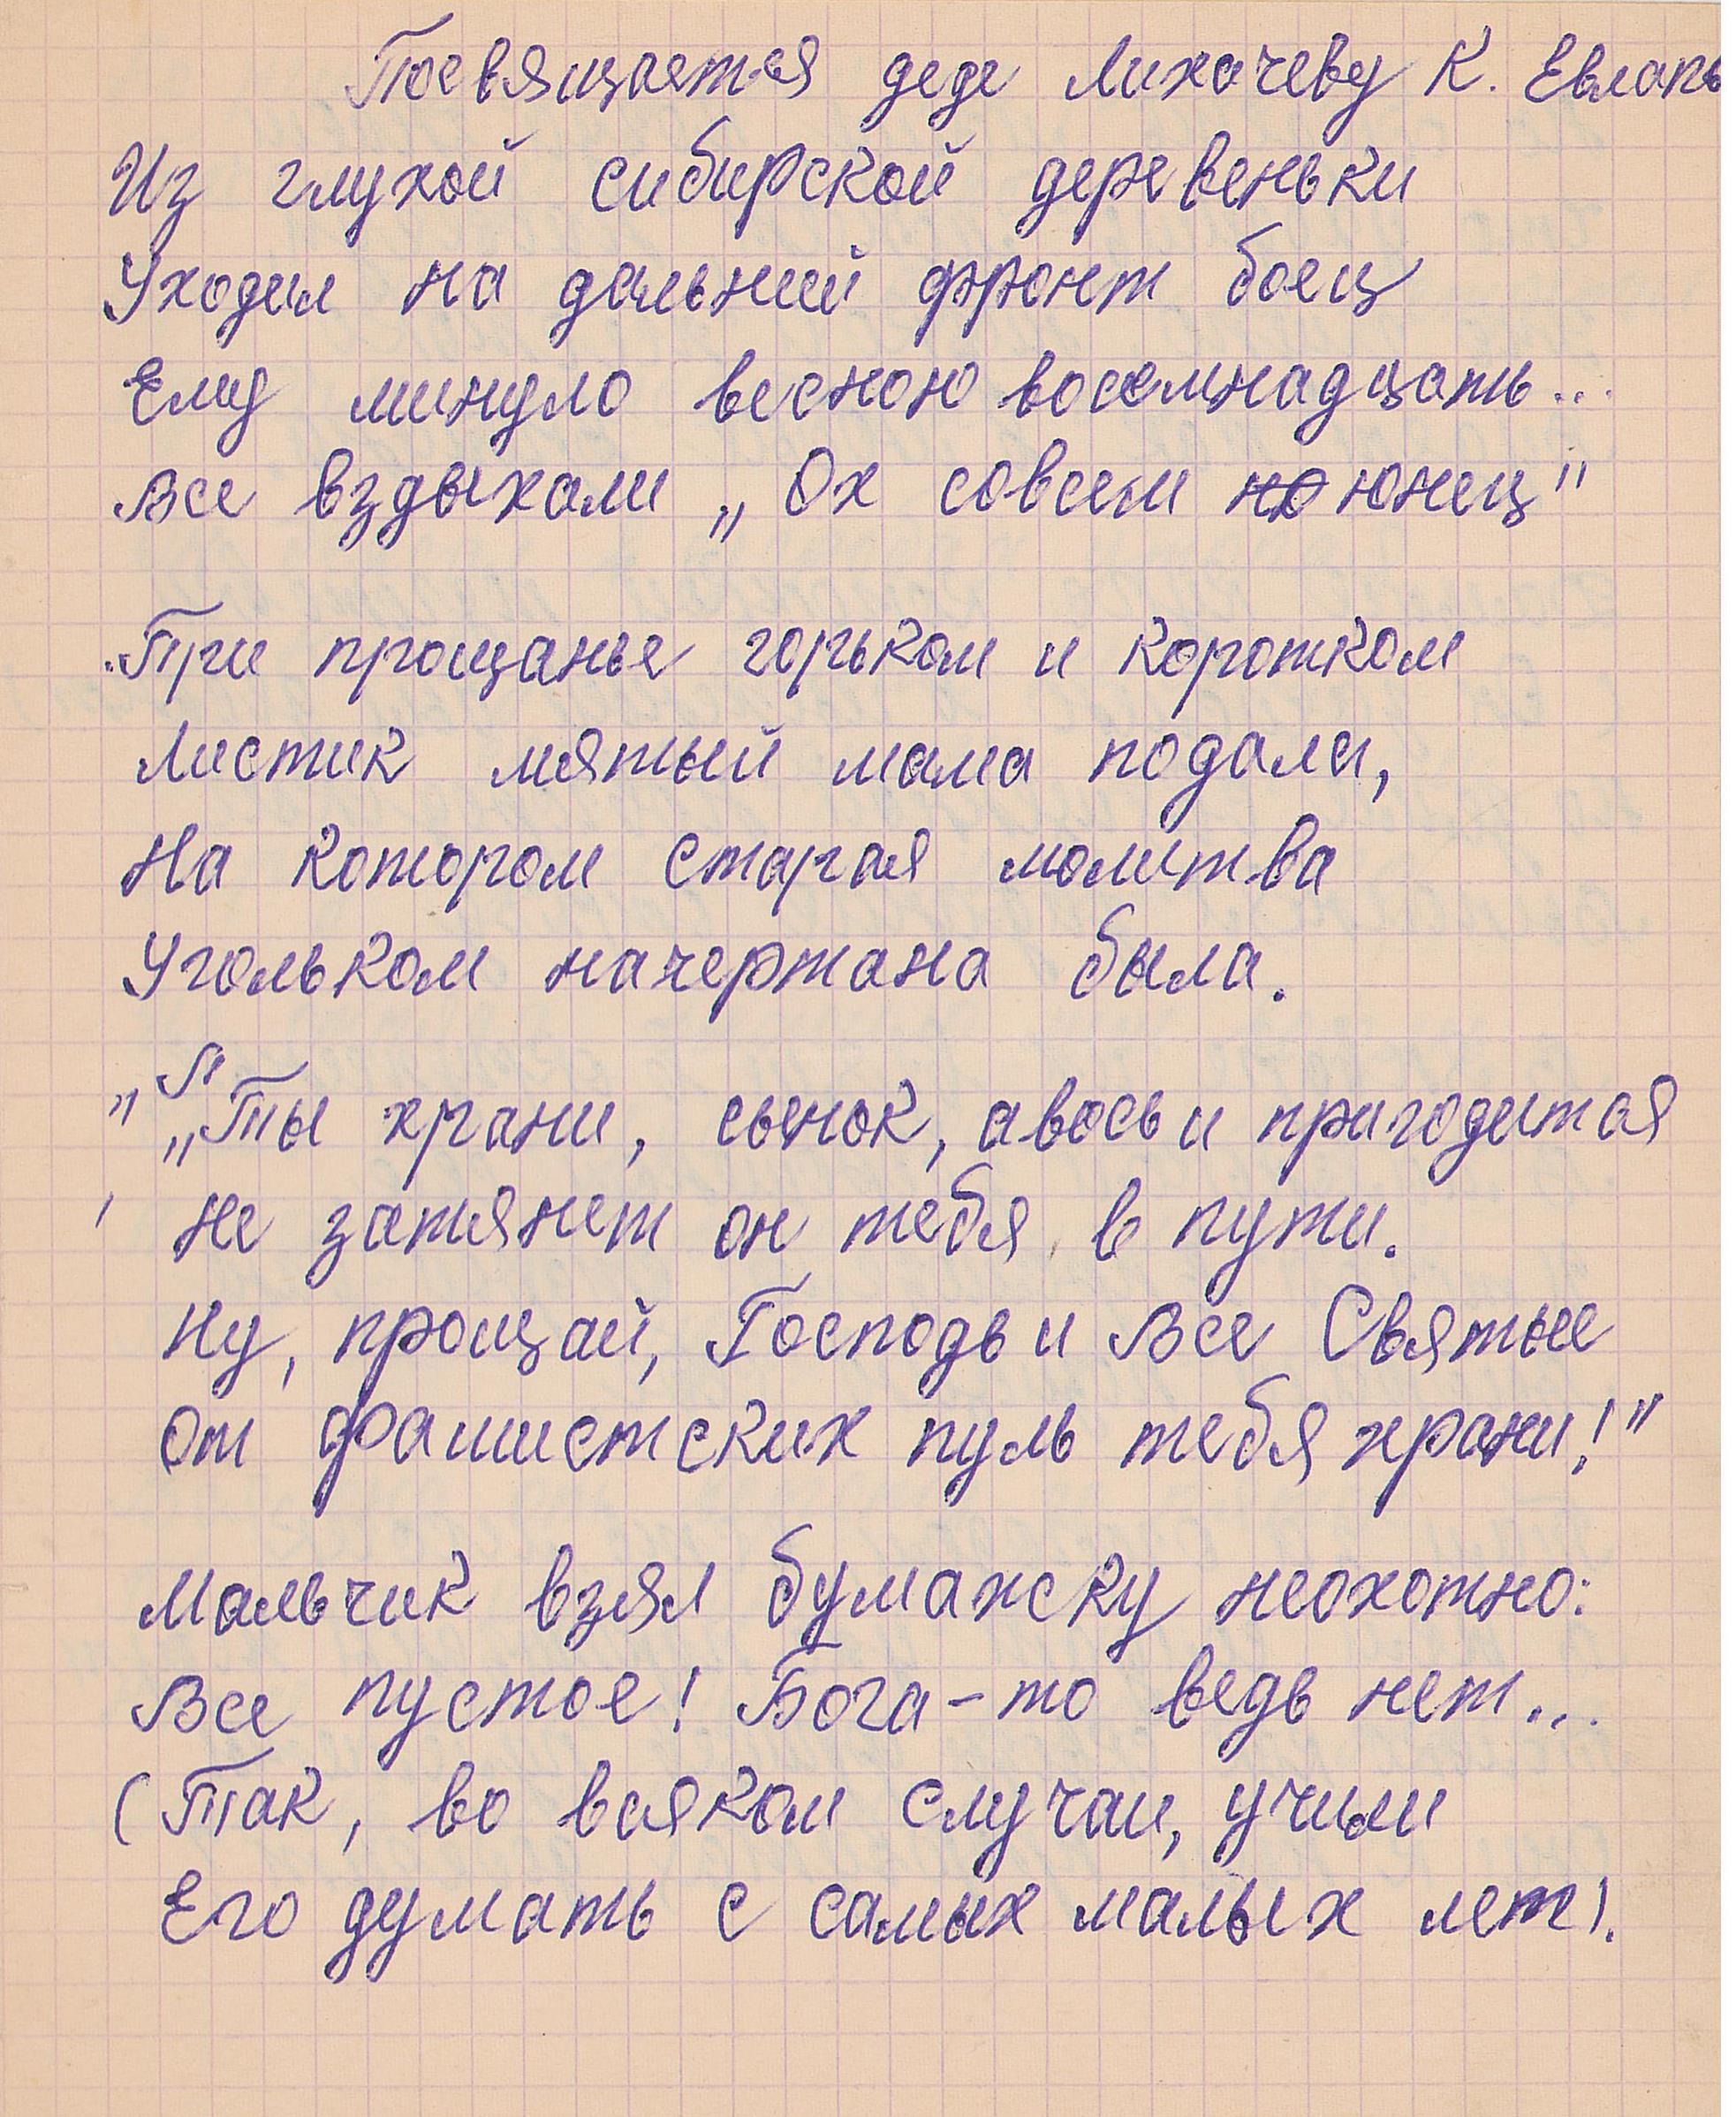 Посвящается деде Лихачеву К. Евлапь
Из глухой сибирской деревеньки
Уходил на дальний фронт боец
Ему минуло весною восемнадцать...
Все вздыхали „Ох совсем но юнец"
При прощанье горьком и коротком
Листик мятый мама подала,
На котором старая молитва
Угольком начертана была.
„Ты храни, сынок, авось и пригодится
Не затянет он тебя в пути.
Ну, прощай, Господь и Все Святые
От фашистских пуль тебя храни!"
Мальчик взял бумажку неохотно:
Все пустое! Бога-то ведь нет...
(Так, во всяком случаи, учили
Его думать с самых малых лет).